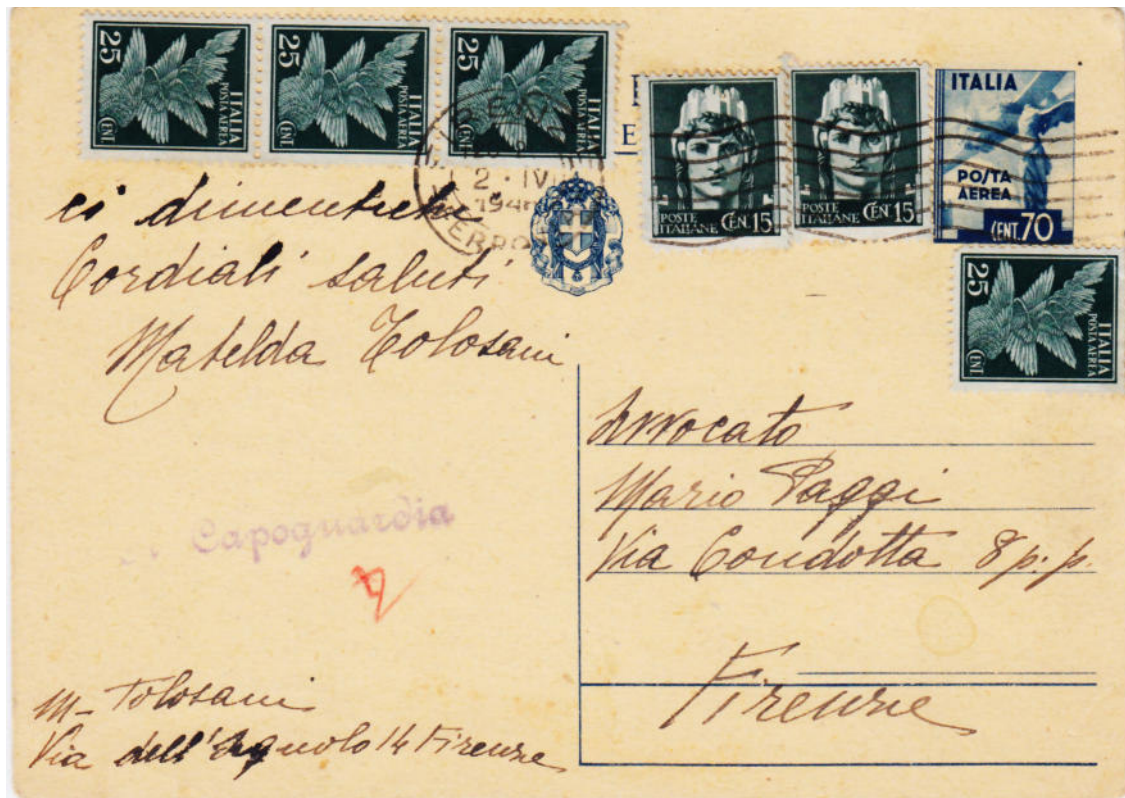 25 ITALIA POSTA AEREA CENT
25 ITALIA POSTA AEREA CENT
25 ITALIA POSTA AEREA CENT
POSTE ITALIANE CEN. 15
POSTE ITALIANE CEN. 15
ITALIA
POSTA AEREA
CENT. 70
25 ITALIA POSTA AEREA CENT
2 · IV
194
ci dimentichi
Cordiali saluti
Matelda Tolosani
Avvocato
Mario Paggi
Via Condotta 8 p. p.
Firenze
Capoguardia
M- Tolosani
Via dell'Agnolo 14 Firenze